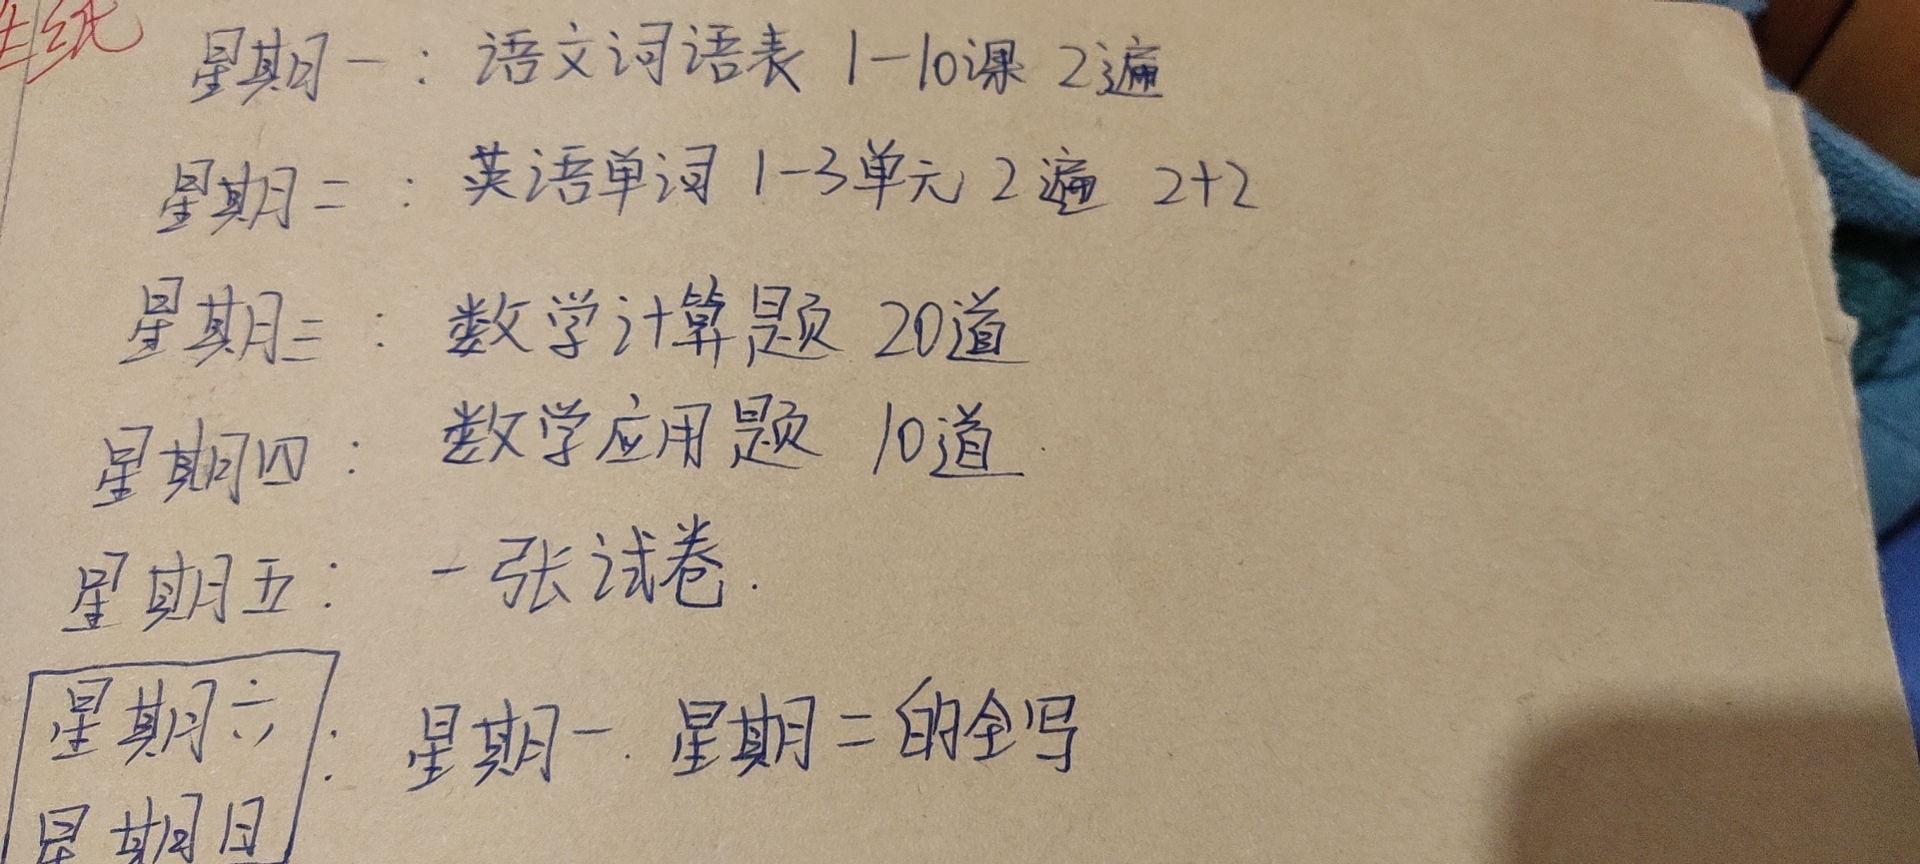 星期一：语文词语表 1-10课 2遍
星期二：英语单词 1-3单元 2遍 2+2
星期三：数学计算题 20道
星期四：数学应用题 10道
星期五：一张试卷.
星期六：星期一.星期二的全写
星期日